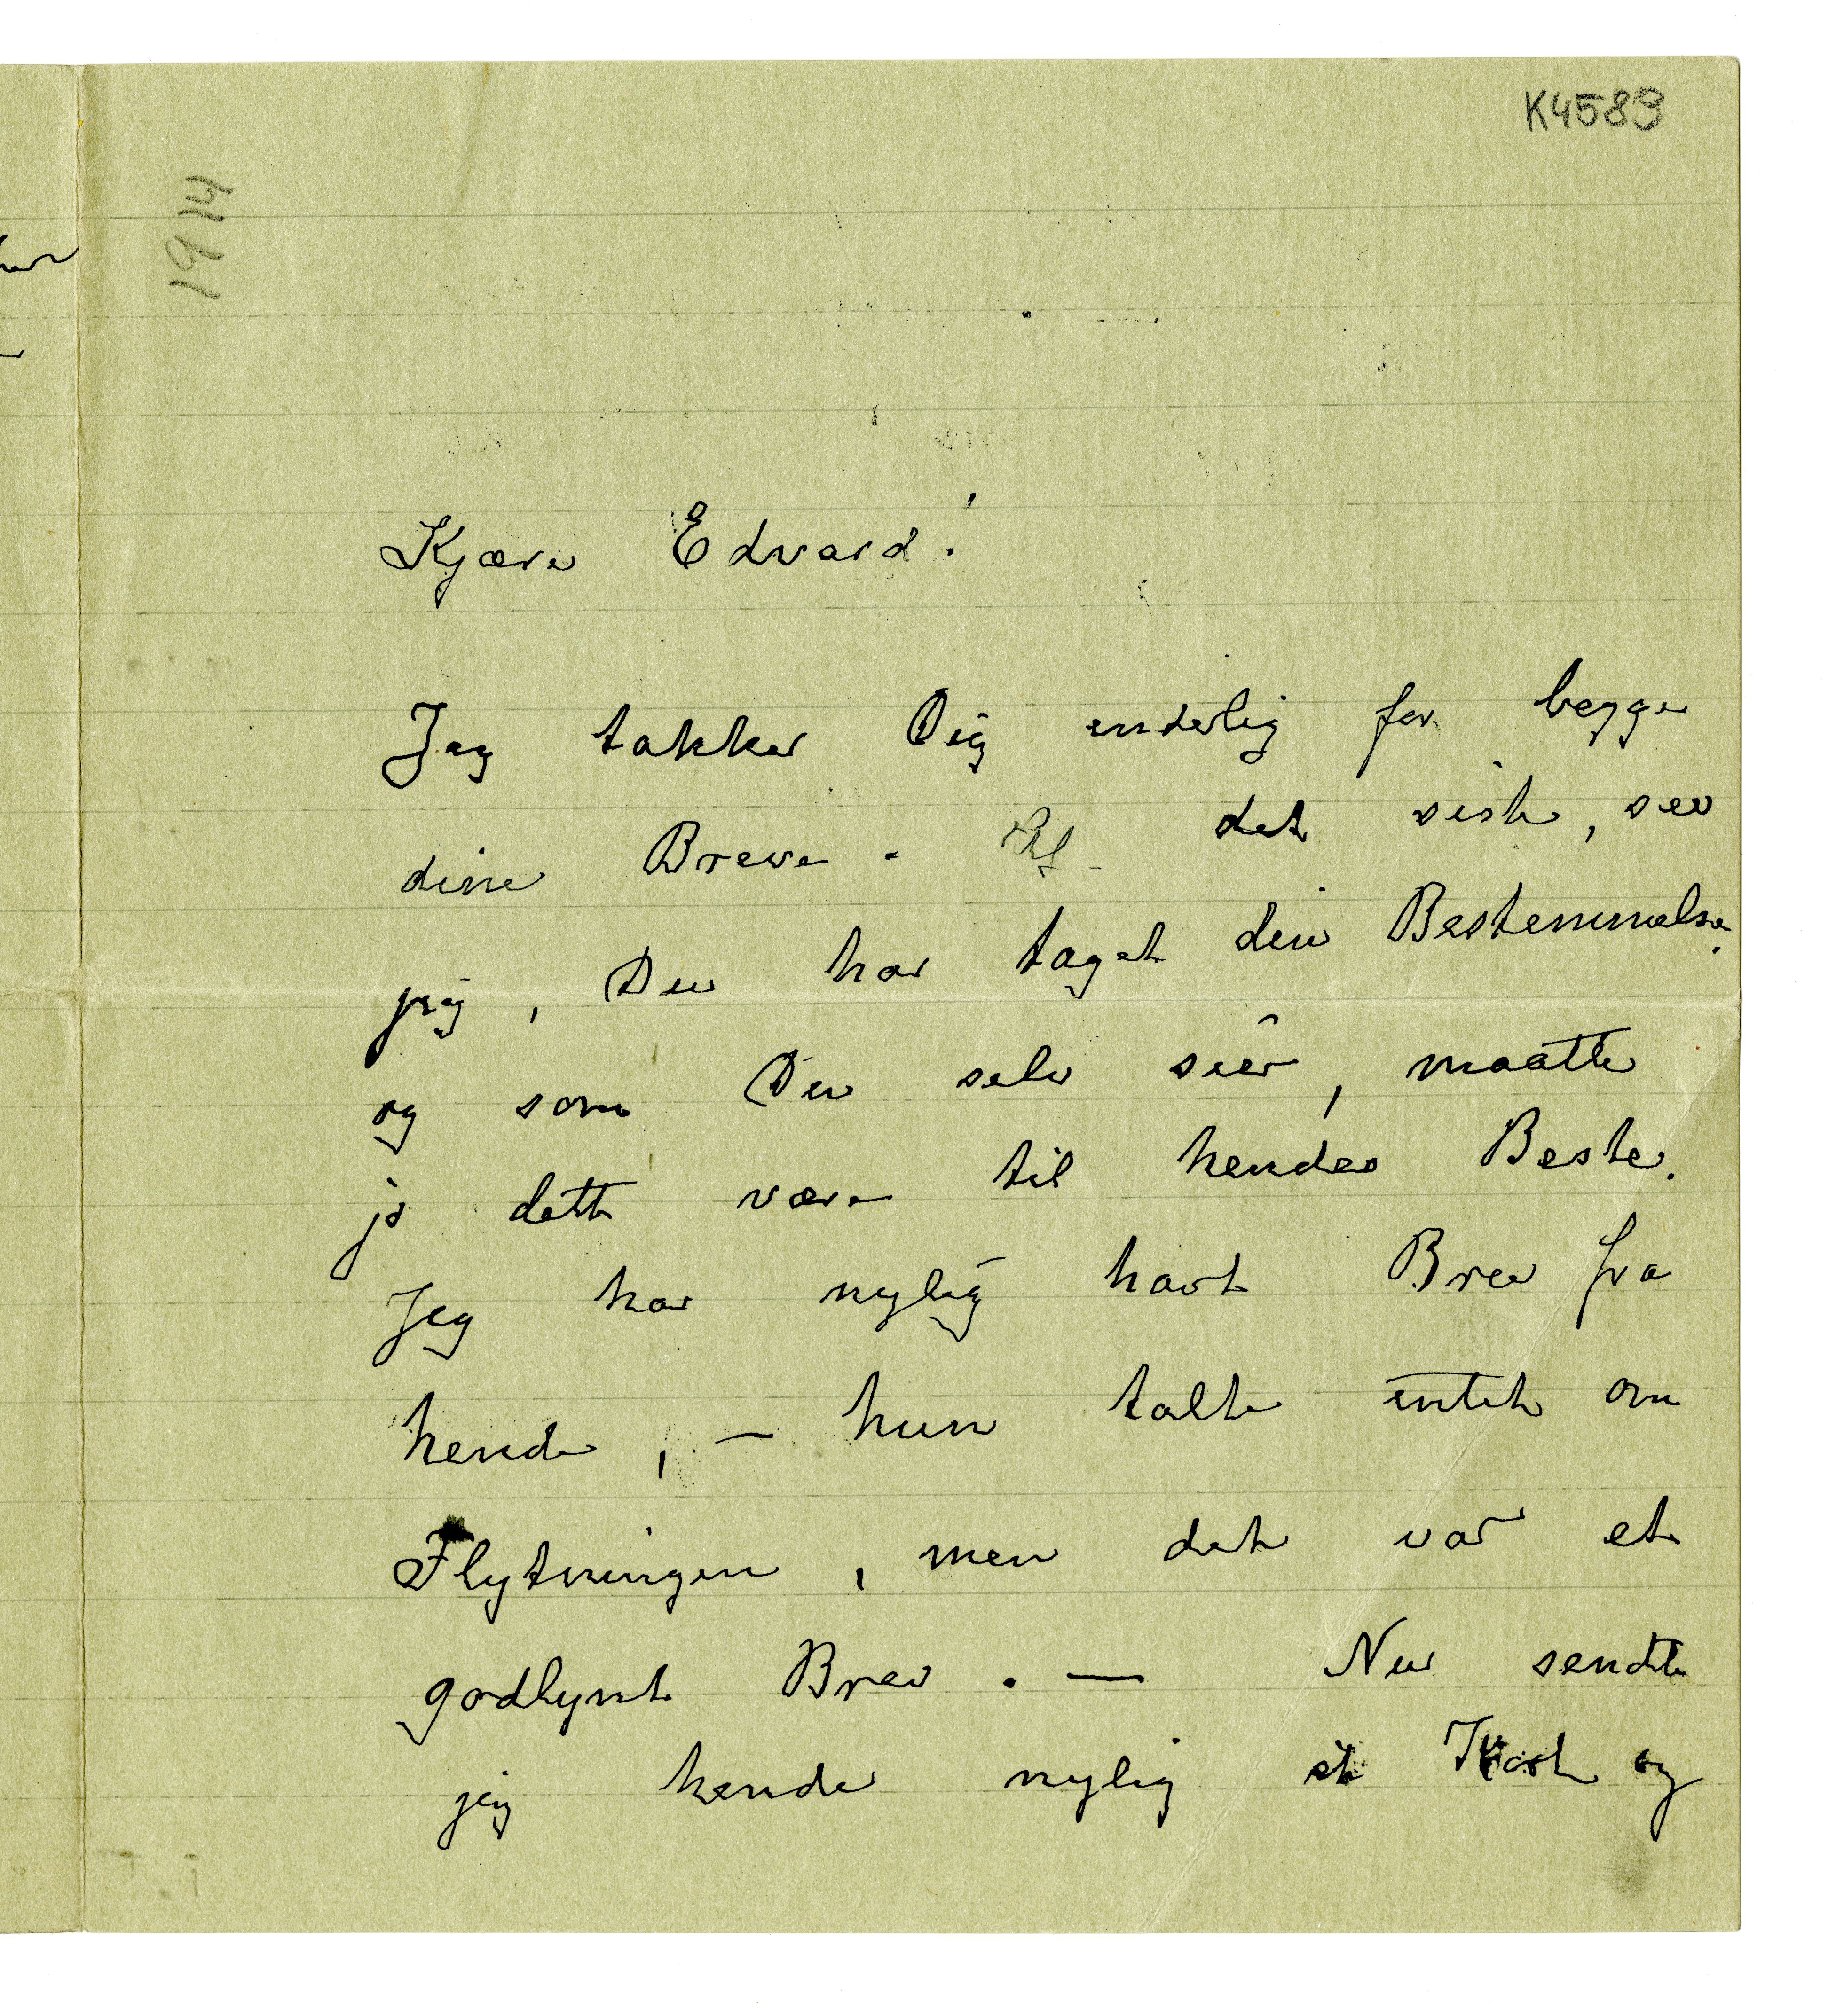 K4589
1914
Kjære Edvard!
Jeg takker Dig inderlig for begge
dine Breve. Af det siste, ser
jeg, Du har taget din Bestemmelse,
og som Du selv sier, maatte
jo dette være til hendes Beste.
Jeg har nylig havt Brev fra
hende, – hun talte intet om
Flytningen, men det var et
godlynt Brev. — Nu sendte
jeg hende nylig et Kort og